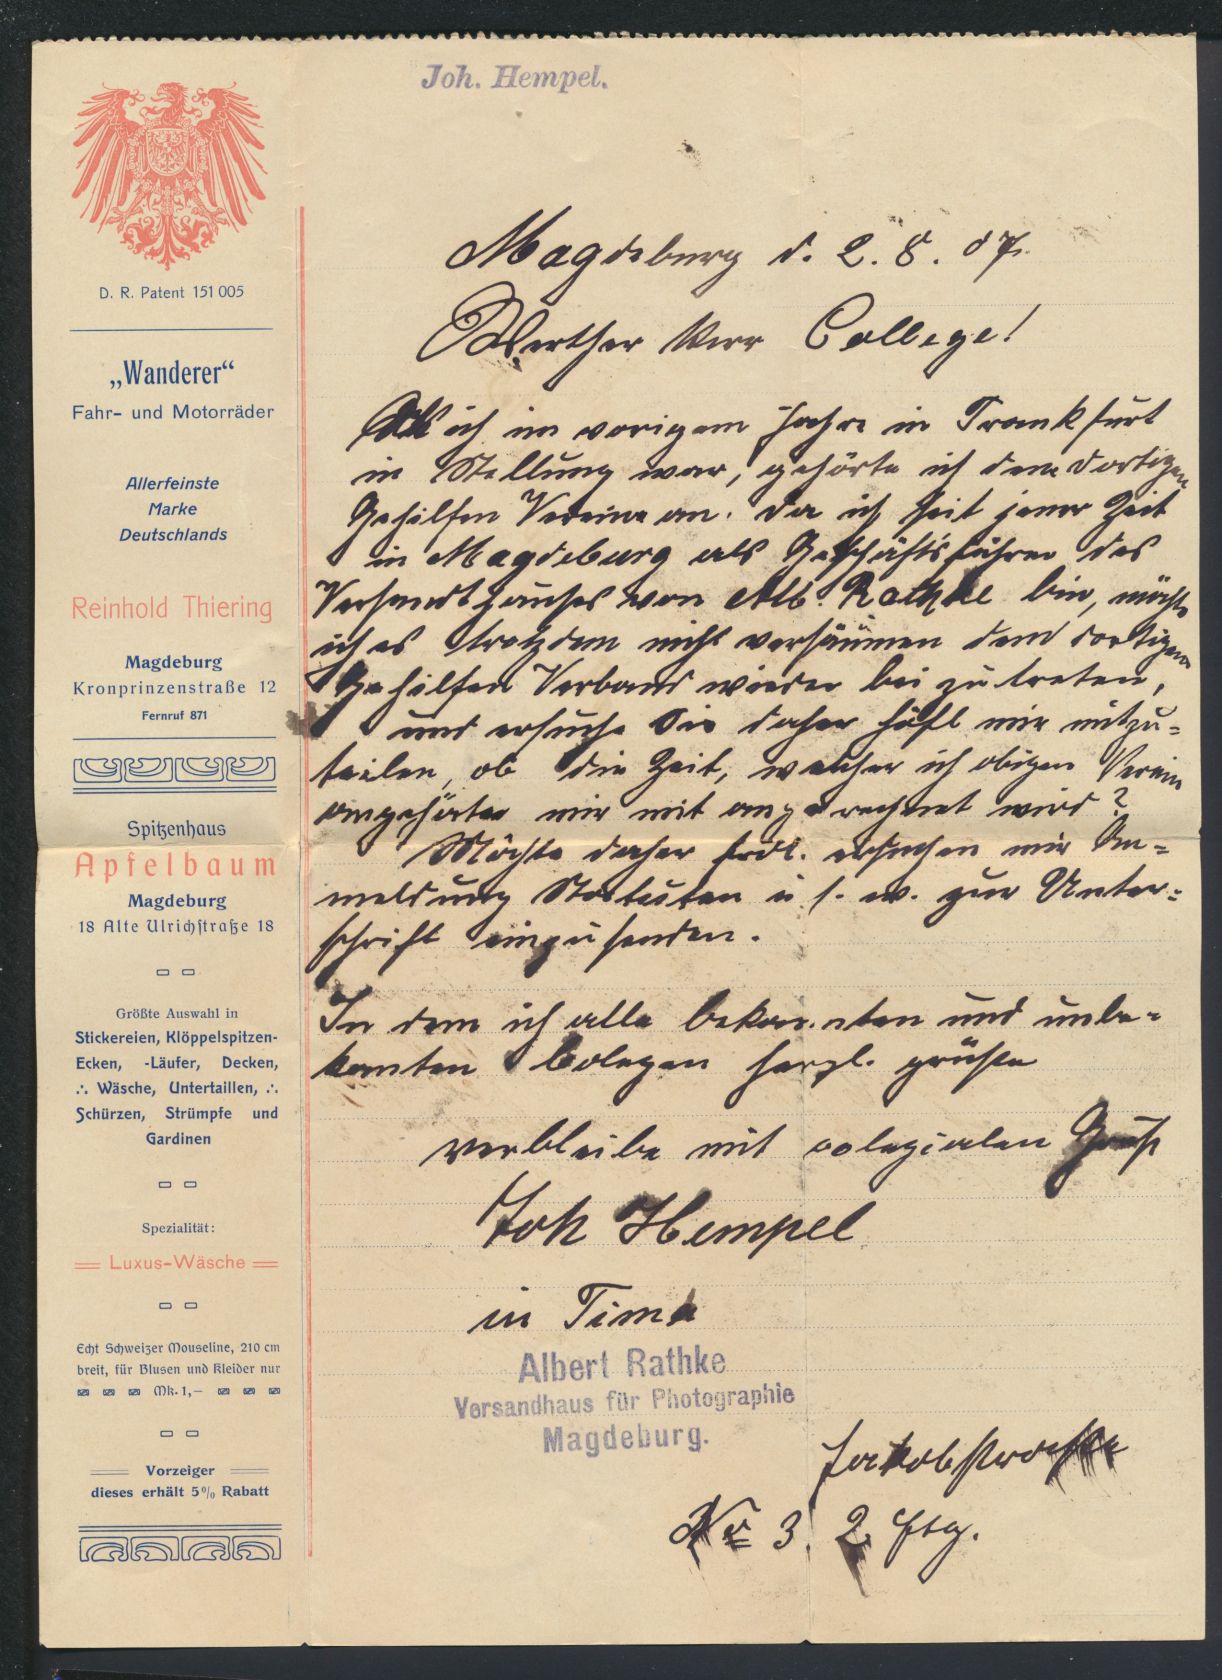 Joh. Hempel.
D. R. Patent 151 005
„Wanderer“
Fahr- und Motorräder
Allerfeinste
Marke
Deutschlands
Reinhold Thiering
Magdeburg
Kronprinzenstraße 12
Fernruf 871
Spitzenhaus
Apfelbaum
Magdeburg
18 Alte Ulrichstraße 18
Größte Auswahl in
Stickereien, Klöppelspitzen-
Ecken, -Läufer, Decken,
∴ Wäsche, Untertaillen, ∴
Schürzen, Strümpfe und
Gardinen
Spezialität:
Luxus-Wäsche
Echt Schweizer Mouseline, 210 cm
breit, für Blusen und Kleider nur
Mk. 1,–
Vorzeiger
dieses erhält 5% Rabatt
Magdeburg d. 2. 8. 07.
Werther Herr College!
Als ich im vorigem Jahre in Frankfurt
in Stellung war, gehörte ich dem dortigen
Gehilfen Vereine an. Da ich seit jener Zeit
in Magdeburg als Geschäftsführer des
Versandthauses von Alb. Rathke bin, möchte
ich es trotzdem nicht versäumen dem dortigen
Gehilfen Verband wieder bei zu treten,
und ersuche Sie daher höfl mir mitzu=
teilen, ob die Zeit, welcher ich obigen Verein
angehörte mir mit angerechnet wird?
Möchte daher frdl. ersuchen mir An=
meldung Statuten u. s. w. zur Unter=
schrift einzusenden.
In dem ich alle bekannten und unbe=
kanten Colegen herzl. grüße
verbleibe mit colegialen Gruß
Joh Hempel
in Firma
Albert Rathke
Versandhaus für Photographie
Magdeburg.
Jakobstraße
No 3. 2 Etg.